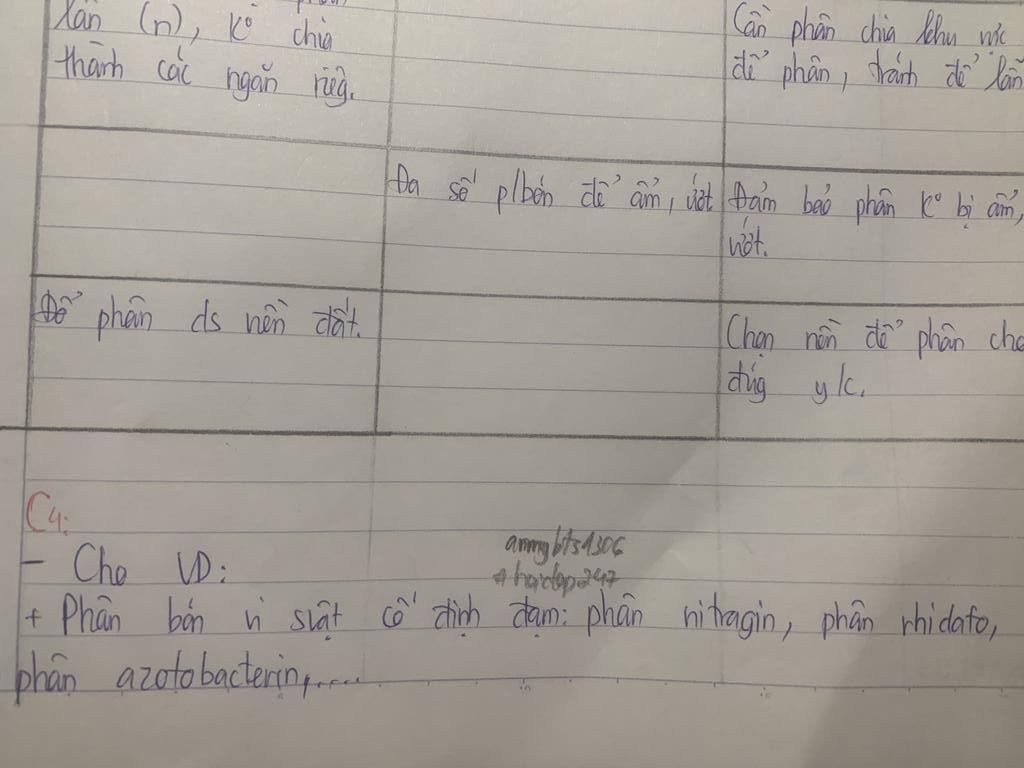 lẫn (n), ko chia
thành các ngăn riêg.
Cần phân chia khu vức
để phân, tránh để lẫn
Đa số p/bón dễ ẩm, ướt
Đảm bảo phân ko bị ẩm,
ướt.
Để phân ds nền đất.
Chọn nền để phân cho
đúg y/c.
C4:
- Cho VD:
armybts1306
+ Phân bón vi svật cố định đạm: phân nitragin, phân rhidafo,
phân azotobacterin,.....